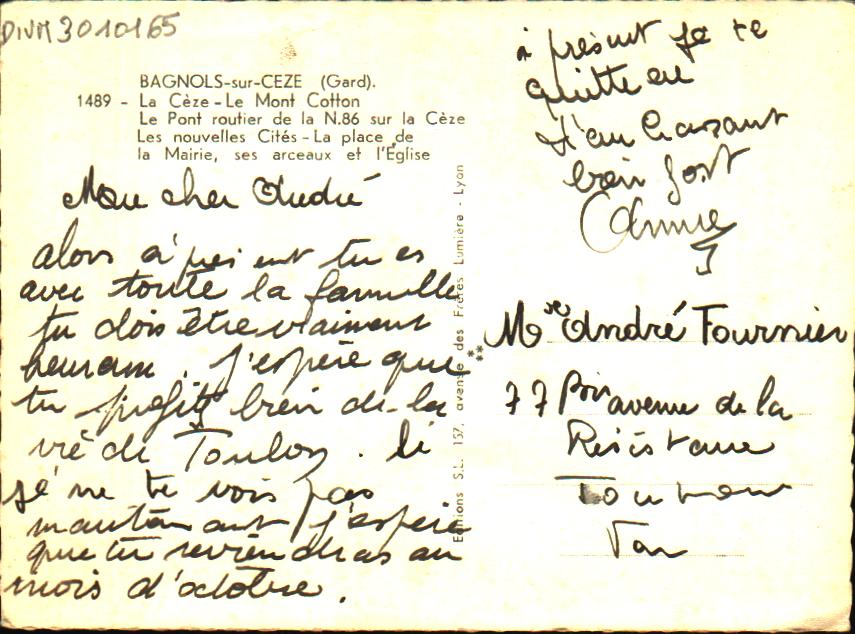 DIVM3010165
BAGNOLS-sur-CEZE (Gard).
1489 - La Cèze - Le Mont Cotton
Le Pont routier de la N.86 sur la Cèze
Les nouvelles Cités - La place de
la Mairie, ses arceaux et l'Église
Mon cher André
alors à présent tu es
avec toute la famille
tu dois être vraiment
heureux. J'espère que
tu profites bien de la
vie de Toulon. Si
je ne te vois pas
maintenant j'espère
que tu reviendras au
mois d'octobre.
Editions S.L. 157, avenue des Frères Lumière - Lyon
à présent je te
quitte en
t'embrassant
bien fort
Annie
Mre André Fournier
77 Bis avenue de la
Résistance
Toulon
Var